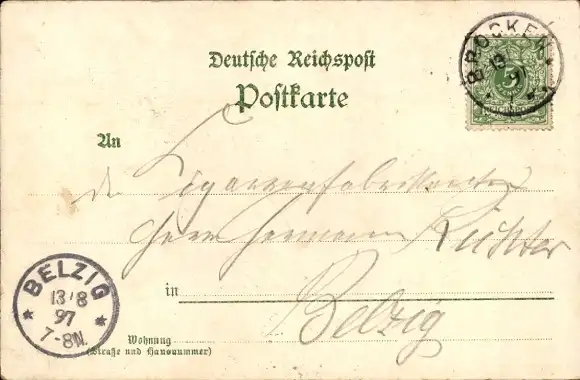 Deutsche Reichspost
Postkarte
BROCKEN
13
97
5
An
den Cigarrenfabrikanten
Herrn Hermann Richter
in Belzig
BELZIG
13/8
97
7-8N.
Wohnung
(Straße und Hausnummer)